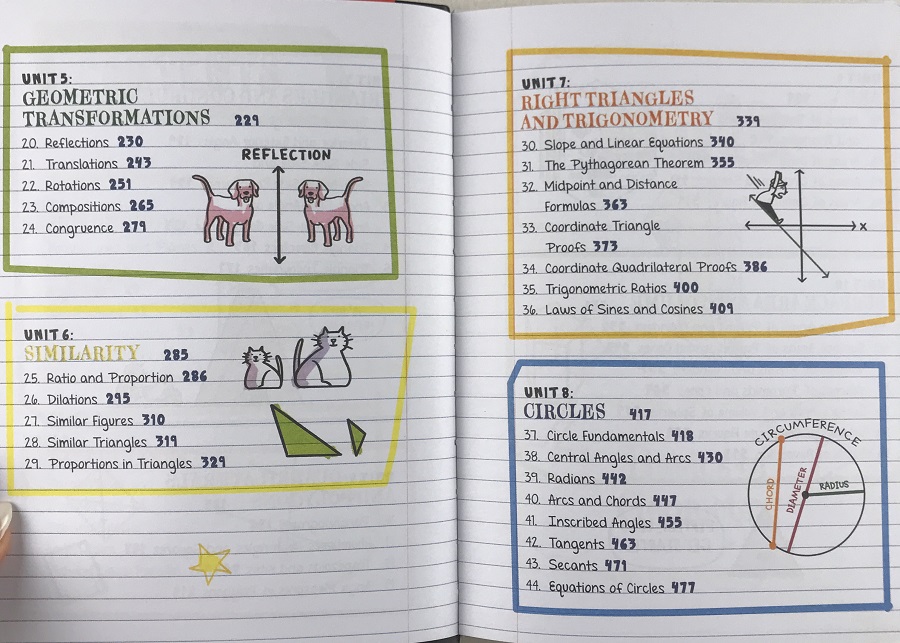 UNIT 5:
GEOMETRIC
TRANSFORMATIONS 229
20. Reflections 230
21. Translations 243
22. Rotations 251
23. Compositions 265
24. Congruence 279
REFLECTION
UNIT 6:
SIMILARITY 285
25. Ratio and Proportion 286
26. Dilations 295
27. Similar Figures 310
28. Similar Triangles 319
29. Proportions in Triangles 329
UNIT 7:
RIGHT TRIANGLES
AND TRIGONOMETRY 339
30. Slope and Linear Equations 340
31. The Pythagorean Theorem 355
32. Midpoint and Distance
Formulas 363
33. Coordinate Triangle
Proofs 373
34. Coordinate Quadrilateral Proofs 386
35. Trigonometric Ratios 400
36. Laws of Sines and Cosines 409
x
UNIT 8:
CIRCLES 417
37. Circle Fundamentals 418
38. Central Angles and Arcs 430
39. Radians 442
40. Arcs and Chords 447
41. Inscribed Angles 455
42. Tangents 463
43. Secants 471
44. Equations of Circles 477
CIRCUMFERENCE
CHORD
DIAMETER
RADIUS